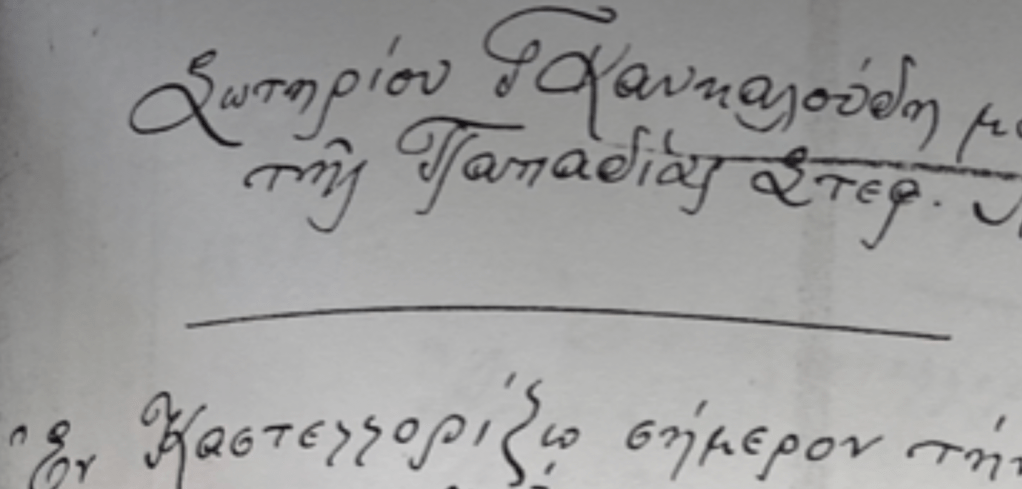 Σωτηρίου Γ Καυκαλούδη με
τῆς Παπαδιᾶς Στεφ.
Καστελλορίζω σήμερον τήν